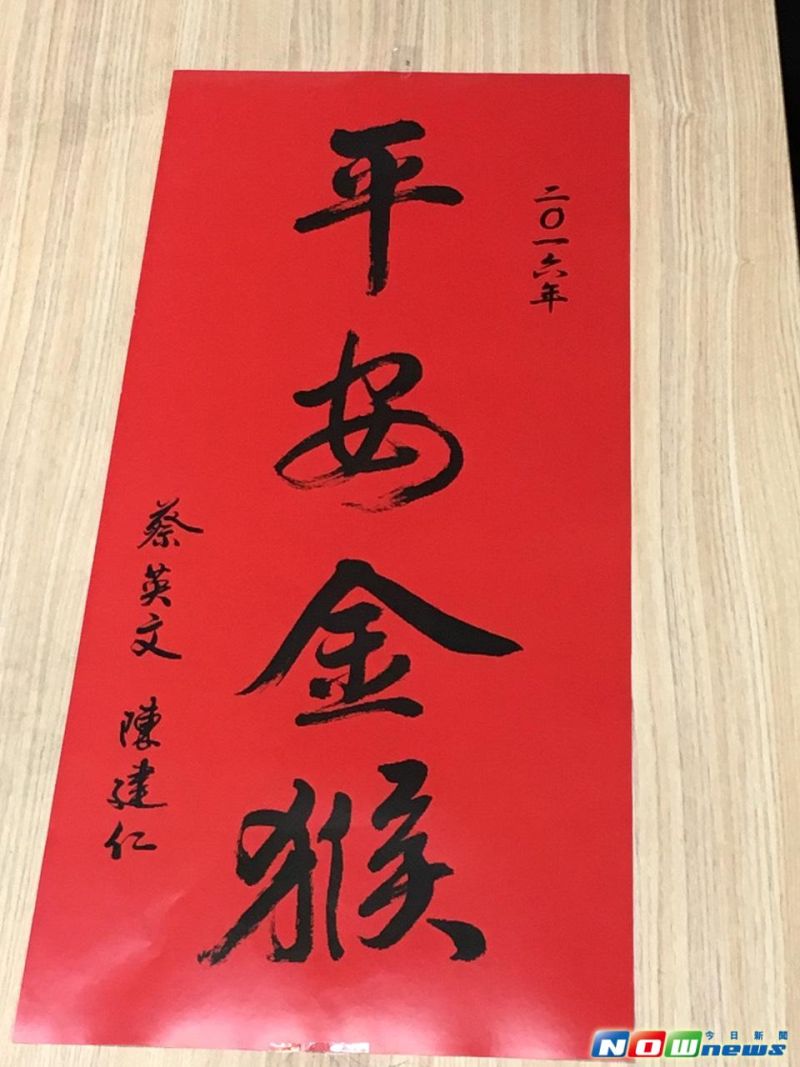 二〇一六年
平安金猴
蔡英文 陳建仁
今日新聞
NOWnews